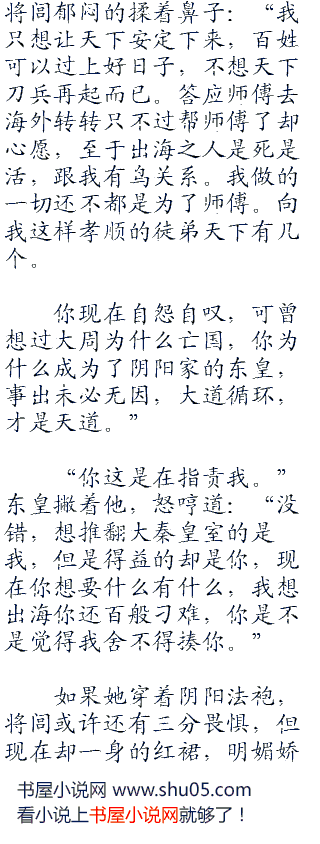 将闾郁闷的揉着鼻子：“我
只想让天下安定下来，百姓
可以过上好日子，不想天下
刀兵再起而已。答应师傅去
海外转转只不过帮师傅了却
心愿，至于出海之人是死是
活，跟我有鸟关系。我做的
一切还不都是为了师傅。向
我这样孝顺的徒弟天下有几
个。
你现在自怨自叹，可曾
想过大周为什么亡国，你为
什么成为了阴阳家的东皇，
事出未必无因，大道循环，
才是天道。”
“你这是在指责我。”
东皇撇着他，怒哼道：“没
错，想推翻大秦皇室的是
我，但是得益的却是你，现
在你想要什么有什么，我想
出海你还百般刁难，你是不
是觉得我舍不得揍你。”
如果她穿着阴阳法袍，
将闾或许还有三分畏惧，但
现在却一身的红裙，明媚娇
书屋小说网 www.shu05.com
看小说上书屋小说网就够了！